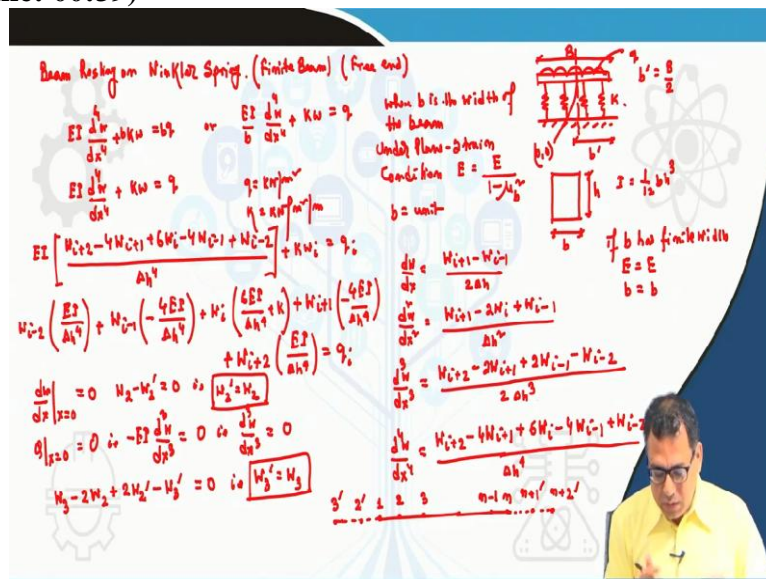 Beam Resting on Winkler Spring. (Finite Beam) (Free end)
EI d⁴w/dx⁴ + bKw = bq or EI/b d⁴w/dx⁴ + Kw = q
EI d⁴w/dx⁴ + Kw = q q = kN/m²
K = kN/m²/m
EI [(w_{i+2} - 4w_{i+1} + 6w_i - 4w_{i-1} + w_{i-2})/Δh⁴] + Kw_i = q_i
w_{i-2} (EI/Δh⁴) + w_{i-1} (-4EI/Δh⁴) + w_i (6EI/Δh⁴ + K) + w_{i+1} (-4EI/Δh⁴)
+ w_{i+2} (EI/Δh⁴) = q_i
dw/dx|_{x=0} = 0 w_2 - w_2' = 0 is w_2' = w_2
Q|_{x=0} = 0 is -EI d³w/dx³ = 0 is d³w/dx³ = 0
w_3 - 2w_2 + 2w_2' - w_3' = 0 is w_3' = w_3
when b is the width of
the beam
Under Plane-strain
Condition E = E/(1-μ_b²)
b = unit
dw/dx = (w_{i+1} - w_{i-1})/2Δh
d²w/dx² = (w_{i+1} - 2w_i + w_{i-1})/Δh²
d³w/dx³ = (w_{i+2} - 2w_{i+1} + 2w_{i-1} - w_{i-2})/2Δh³
d⁴w/dx⁴ = (w_{i+2} - 4w_{i+1} + 6w_i - 4w_{i-1} + w_{i-2})/Δh⁴
3' 2' 1 2 3 n-1 n n+1' n+2'
B
q
b' = B/2
K
(0,0)
b'
h
b
I = 1/12 bh³
if b has finite width
E = E
b = b